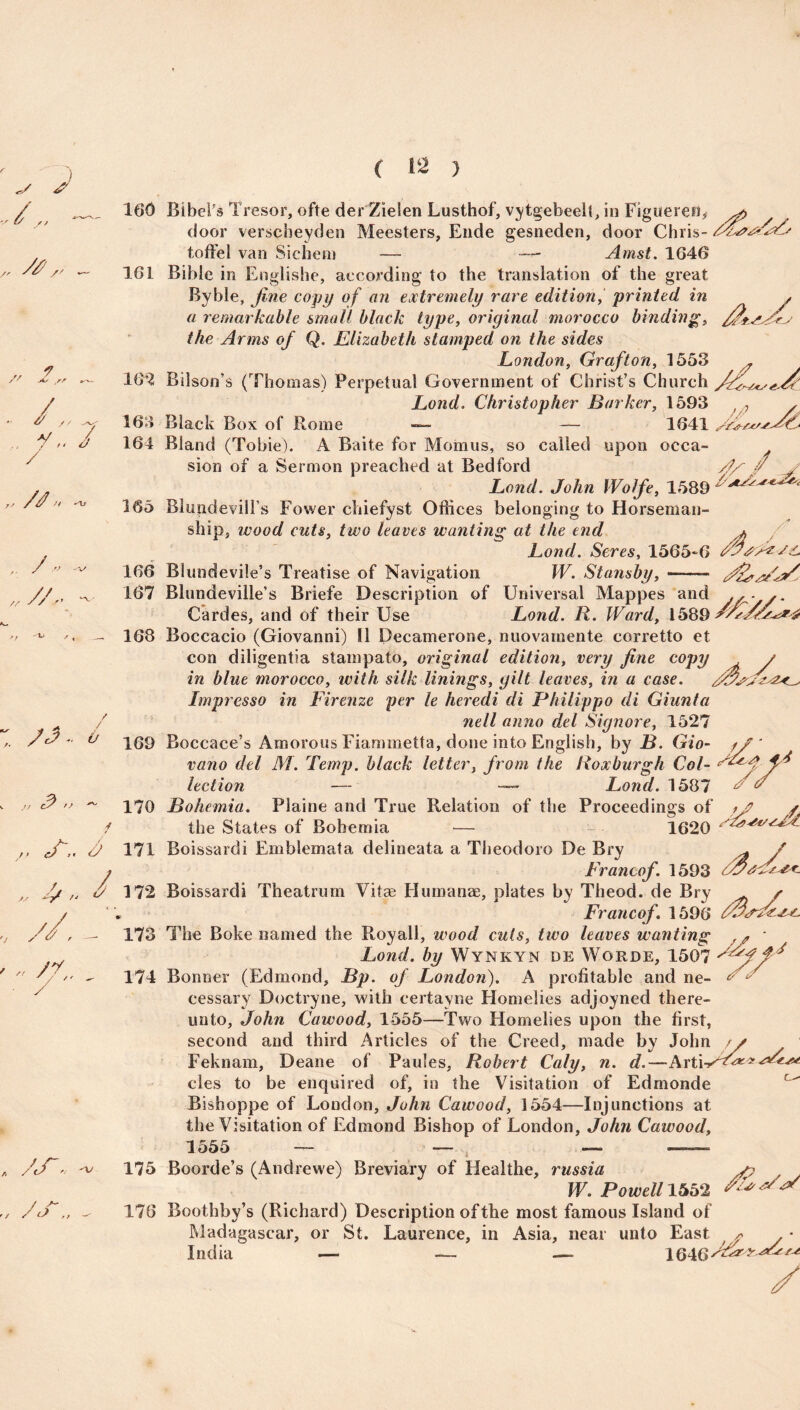 ( 12 )
160 Bibel's Tresor, ofte der Zielen Lusthof, vytgebeelt, in Figueren,
door verscheyden Meesters, Ende gesneden, door Chris-
toffel van Sichem — — Amst. 1646
161 Bible in Englishe, according to the translation of the great
Byble, fine copy of an extremely rare edition, printed in
a remarkable small black type, original morocco binding,
the Arms of Q. Elizabeth stamped on the sides
London, Grafton, 1553
162 Bilson's (Thomas) Perpetual Government of Christ's Church
Lond. Christopher Barker, 1593
163 Black Box of Rome — — 1641
164 Bland (Tobie). A Baite for Momus, so called upon occa-
sion of a Sermon preached at Bedford
Lond. John Wolfe, 1589
165 Blundevill's Fower chiefyst Offices belonging to Horseman-
ship, wood cuts, two leaves wanting at the end
Lond. Seres, 1565-6
166 Blundevile's Treatise of Navigation W. Stansby, ——
167 Blundeville's Briefe Description of Universal Mappes and
Cardes, and of their Use Lond. R. Ward, 1589
168 Boccacio (Giovanni) Il Decamerone, nuovamente corretto et
con diligentia stampato, original edition, very fine copy
in blue morocco, with silk linings, gilt leaves, in a case.
Impresso in Firenze per le heredi di Philippo di Giunta
nell anno del Signore, 1527
169 Boccace's Amorous Fiammetta, done into English, by B. Gio-
vano del M. Temp. black letter, from the Roxburgh Col-
lection — — Lond. 1587
170 Bohemia. Plaine and True Relation of the Proceedings of
the States of Bohemia — 1620
171 Boissardi Emblemata delineata a Theodoro De Bry
Francof. 1593
172 Boissardi Theatrum Vitæ Humanæ, plates by Theod. de Bry
Francof. 1596
173 The Boke named the Royall, wood cuts, two leaves wanting
Lond. by Wynkyn de Worde, 1507
174 Bonner (Edmond, Bp. of London). A profitable and ne-
cessary Doctryne, with certayne Homelies adjoyned there-
unto, John Cawood, 1555—Two Homelies upon the first,
second and third Articles of the Creed, made by John
Feknam, Deane of Paules, Robert Caly, n. d.—Arti-
cles to be enquired of, in the Visitation of Edmonde
Bishoppe of London, John Cawood, 1554—Injunctions at
the Visitation of Edmond Bishop of London, John Cawood,
1555 — — — ——
175 Boorde's (Andrewe) Breviary of Healthe, russia
W. Powell 1552
176 Boothby's (Richard) Description of the most famous Island of
Madagascar, or St. Laurence, in Asia, near unto East
India — — — 1646